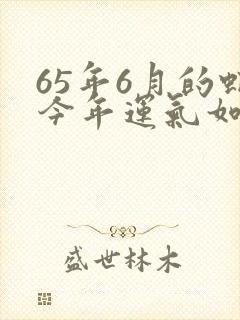 65年6月的
今年運氣如
盛世林木